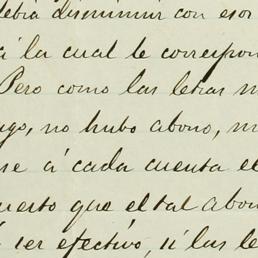 debia disminuir con esor
á la cual le correspon
Pero como las letras n
ago, no hubo abono, n
se á cada cuenta el
uesto que el tal abon
ser efectivo, si las le